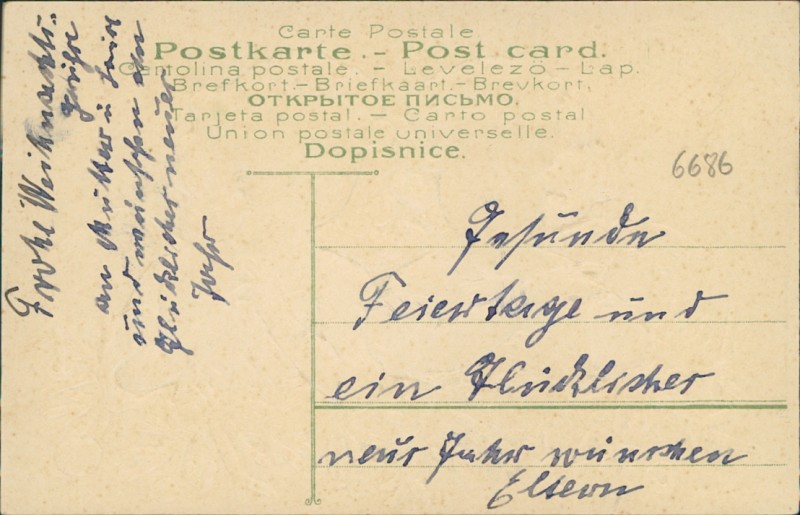 Carte Postale
Postkarte. - Post card.
Cartolina postale. - Levelező - Lap.
Brefkort. - Briefkaart. - Brevkort.
ОТКРЫТОЕ ПИСЬМО.
Tarjeta postal. - Carto postal
Union postale universelle.
Dopisnice.
6686
Gesunde
Feiertage und
ein Glücklicher
neus Jahr wünschen
Eltern
Frohe Weihnachts-
Grüße
an Mutter u
und wünschen ein
Glückliches neues
Jahr